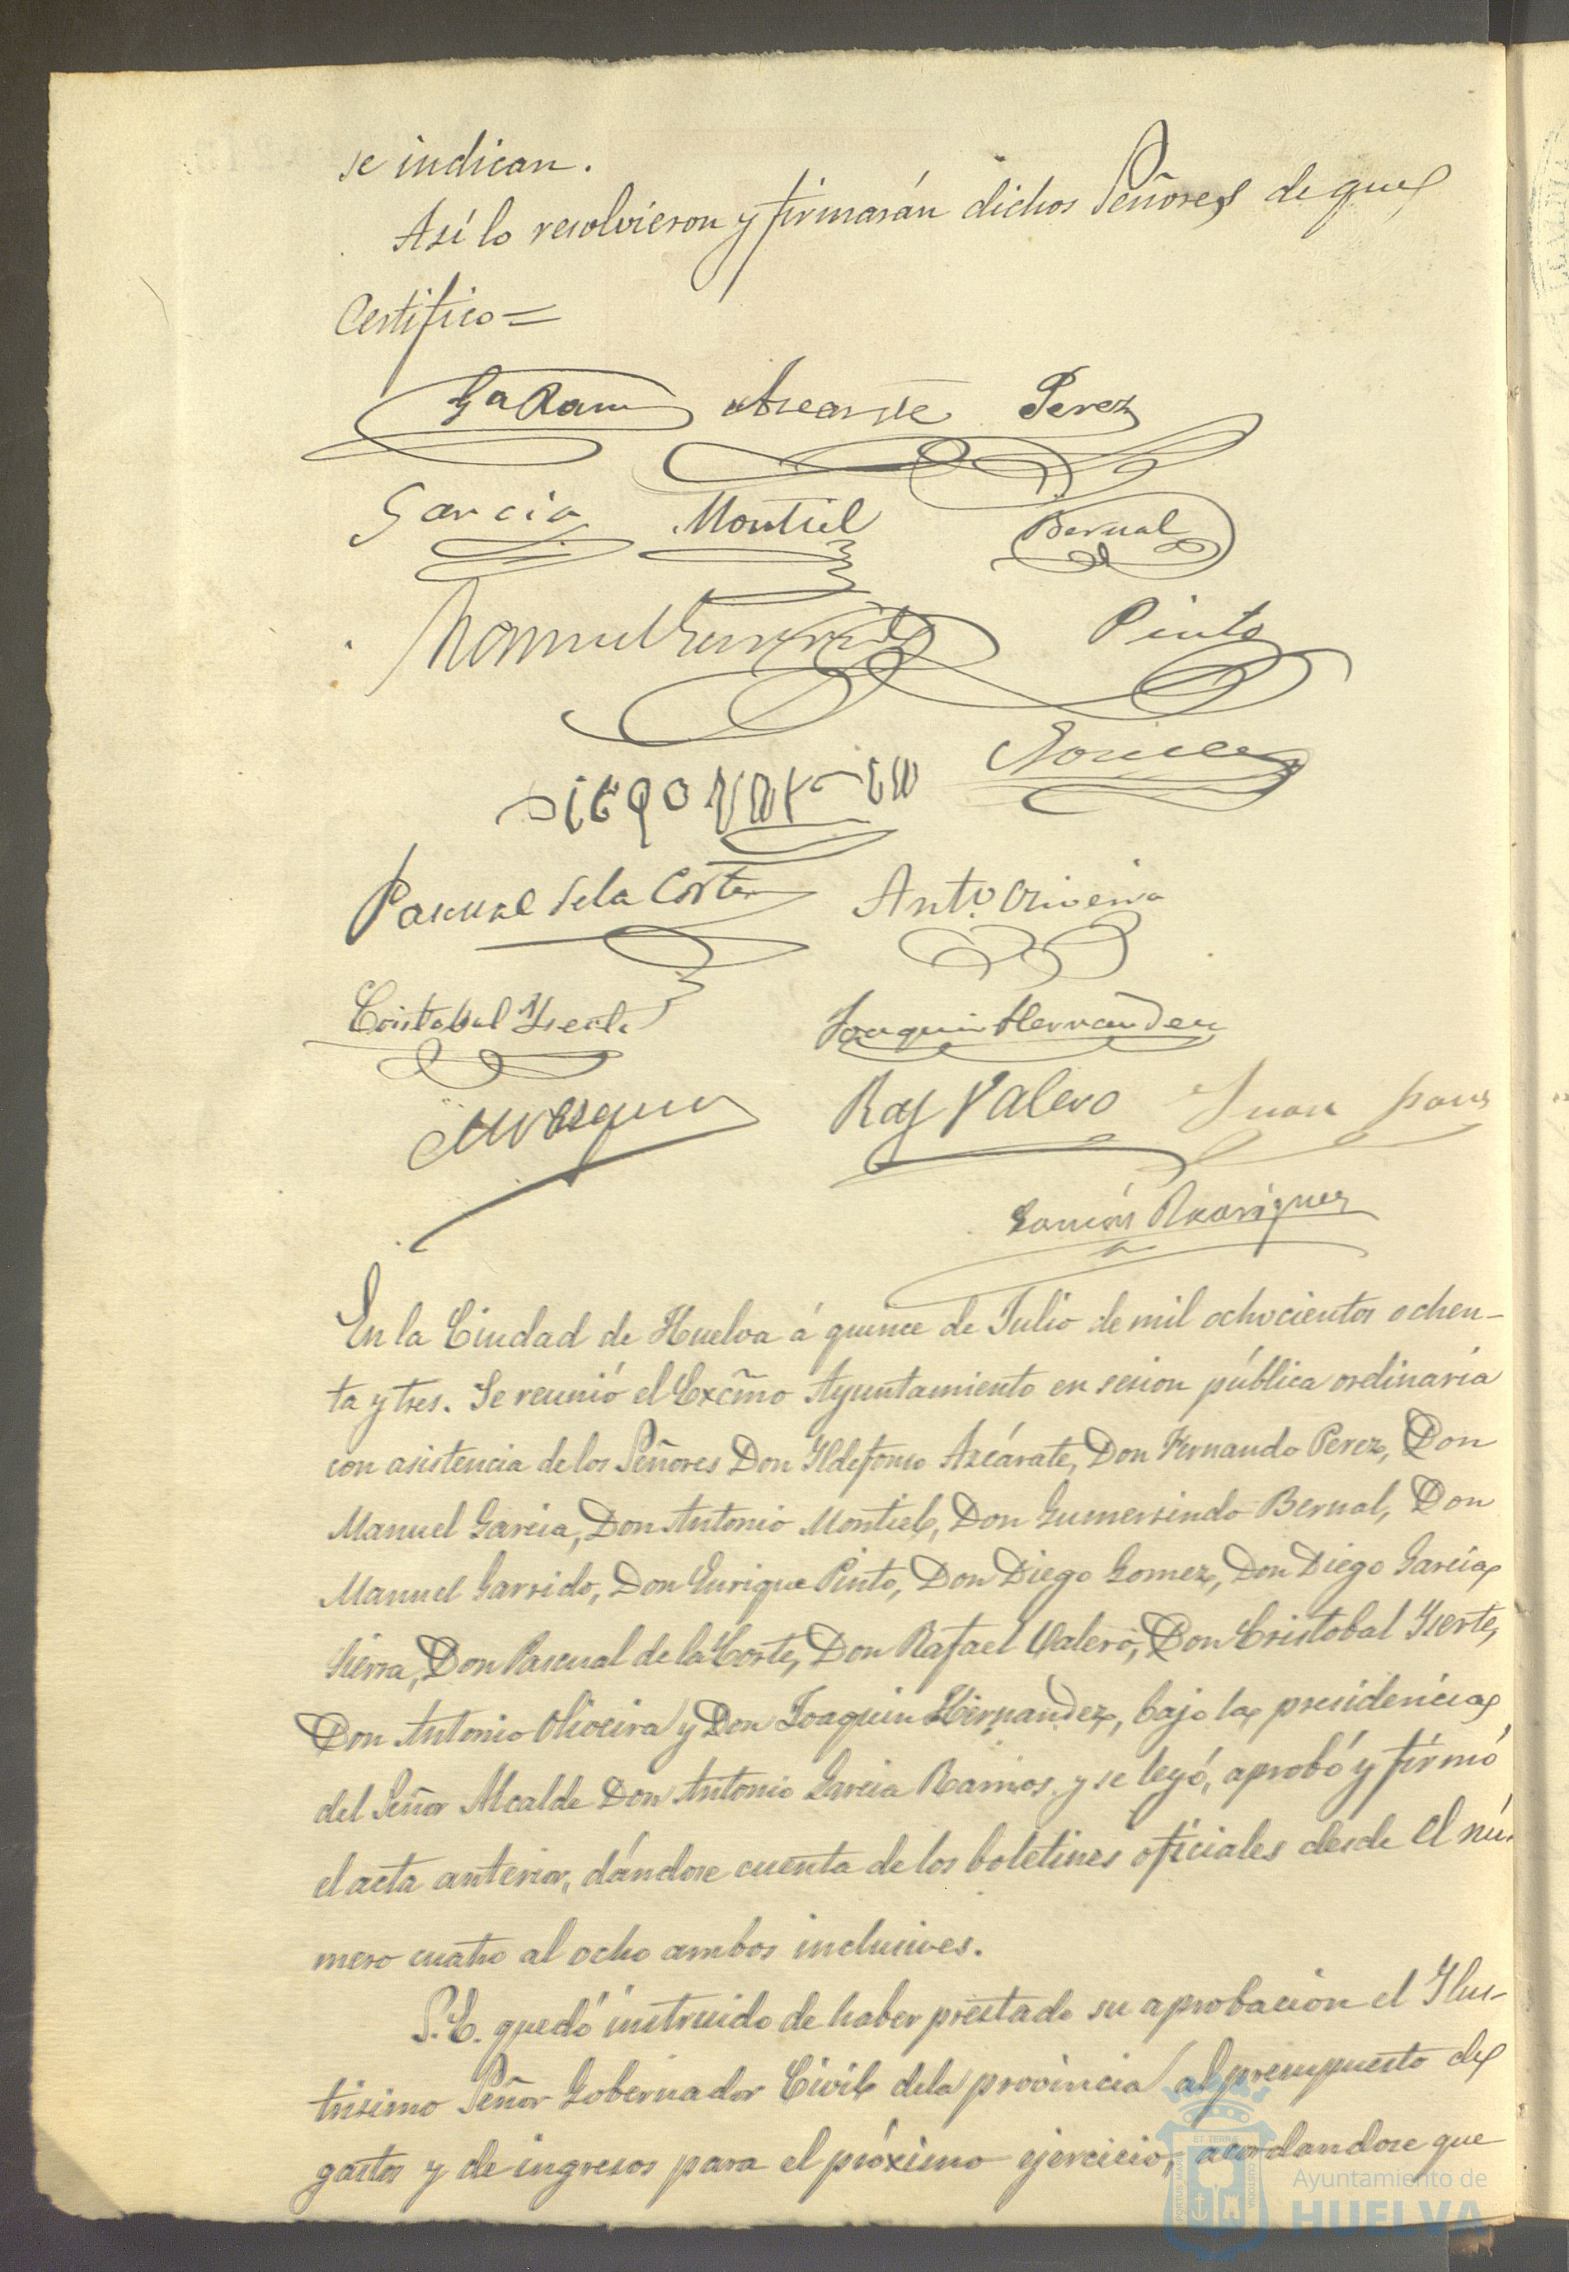 se indican.
Así lo resolvieron y firmarán dichos Señores de que
Certifico =
Ga Ram Azcarate Perez
Garcia Montiel Bernal
Manuel Garrido Pinto
Gomez
Diego
Pascual de la Corte Anto. Oliveira
Cristobal Yserte Joaquin Hernandez
Raf Valero Juan
Ramón Rodriguez
En la Ciudad de Huelva á quince de Julio de mil ochocientos ochen-
ta y tres. Se reunió el Excmo Ayuntamiento en sesion pública ordinaria
con asistencia de los Señores Don Yldefonso Azcárate, Don Fernando Perez, Don
Manuel Garcia, Don Antonio Montiel, Don Gumersindo Bernal, Don
Manuel Garrido, Don Enrique Pinto, Don Diego Gomez, Don Diego Garcia
Sierra, Don Pascual de la Corte, Don Rafael Valero, Don Cristobal Yserte,
Don Antonio Oliveira y Don Joaquin Hernandez, bajo la presidencia
del Señor Alcalde Don Antonio Garcia Ramos, y se leyó, aprobó y firmó
el acta anterior, dándose cuenta de los boletines oficiales desde el nú-
mero cuatro al ocho ambos inclusives.
S.E. quedó instruido de haber prestado su aprobacion el Ylus-
trisimo Señor Gobernador Civil de la provincia al presupuesto de
gastos y de ingresos para el próximo ejercicio, acordandose que
Ayuntamiento de
HUELVA